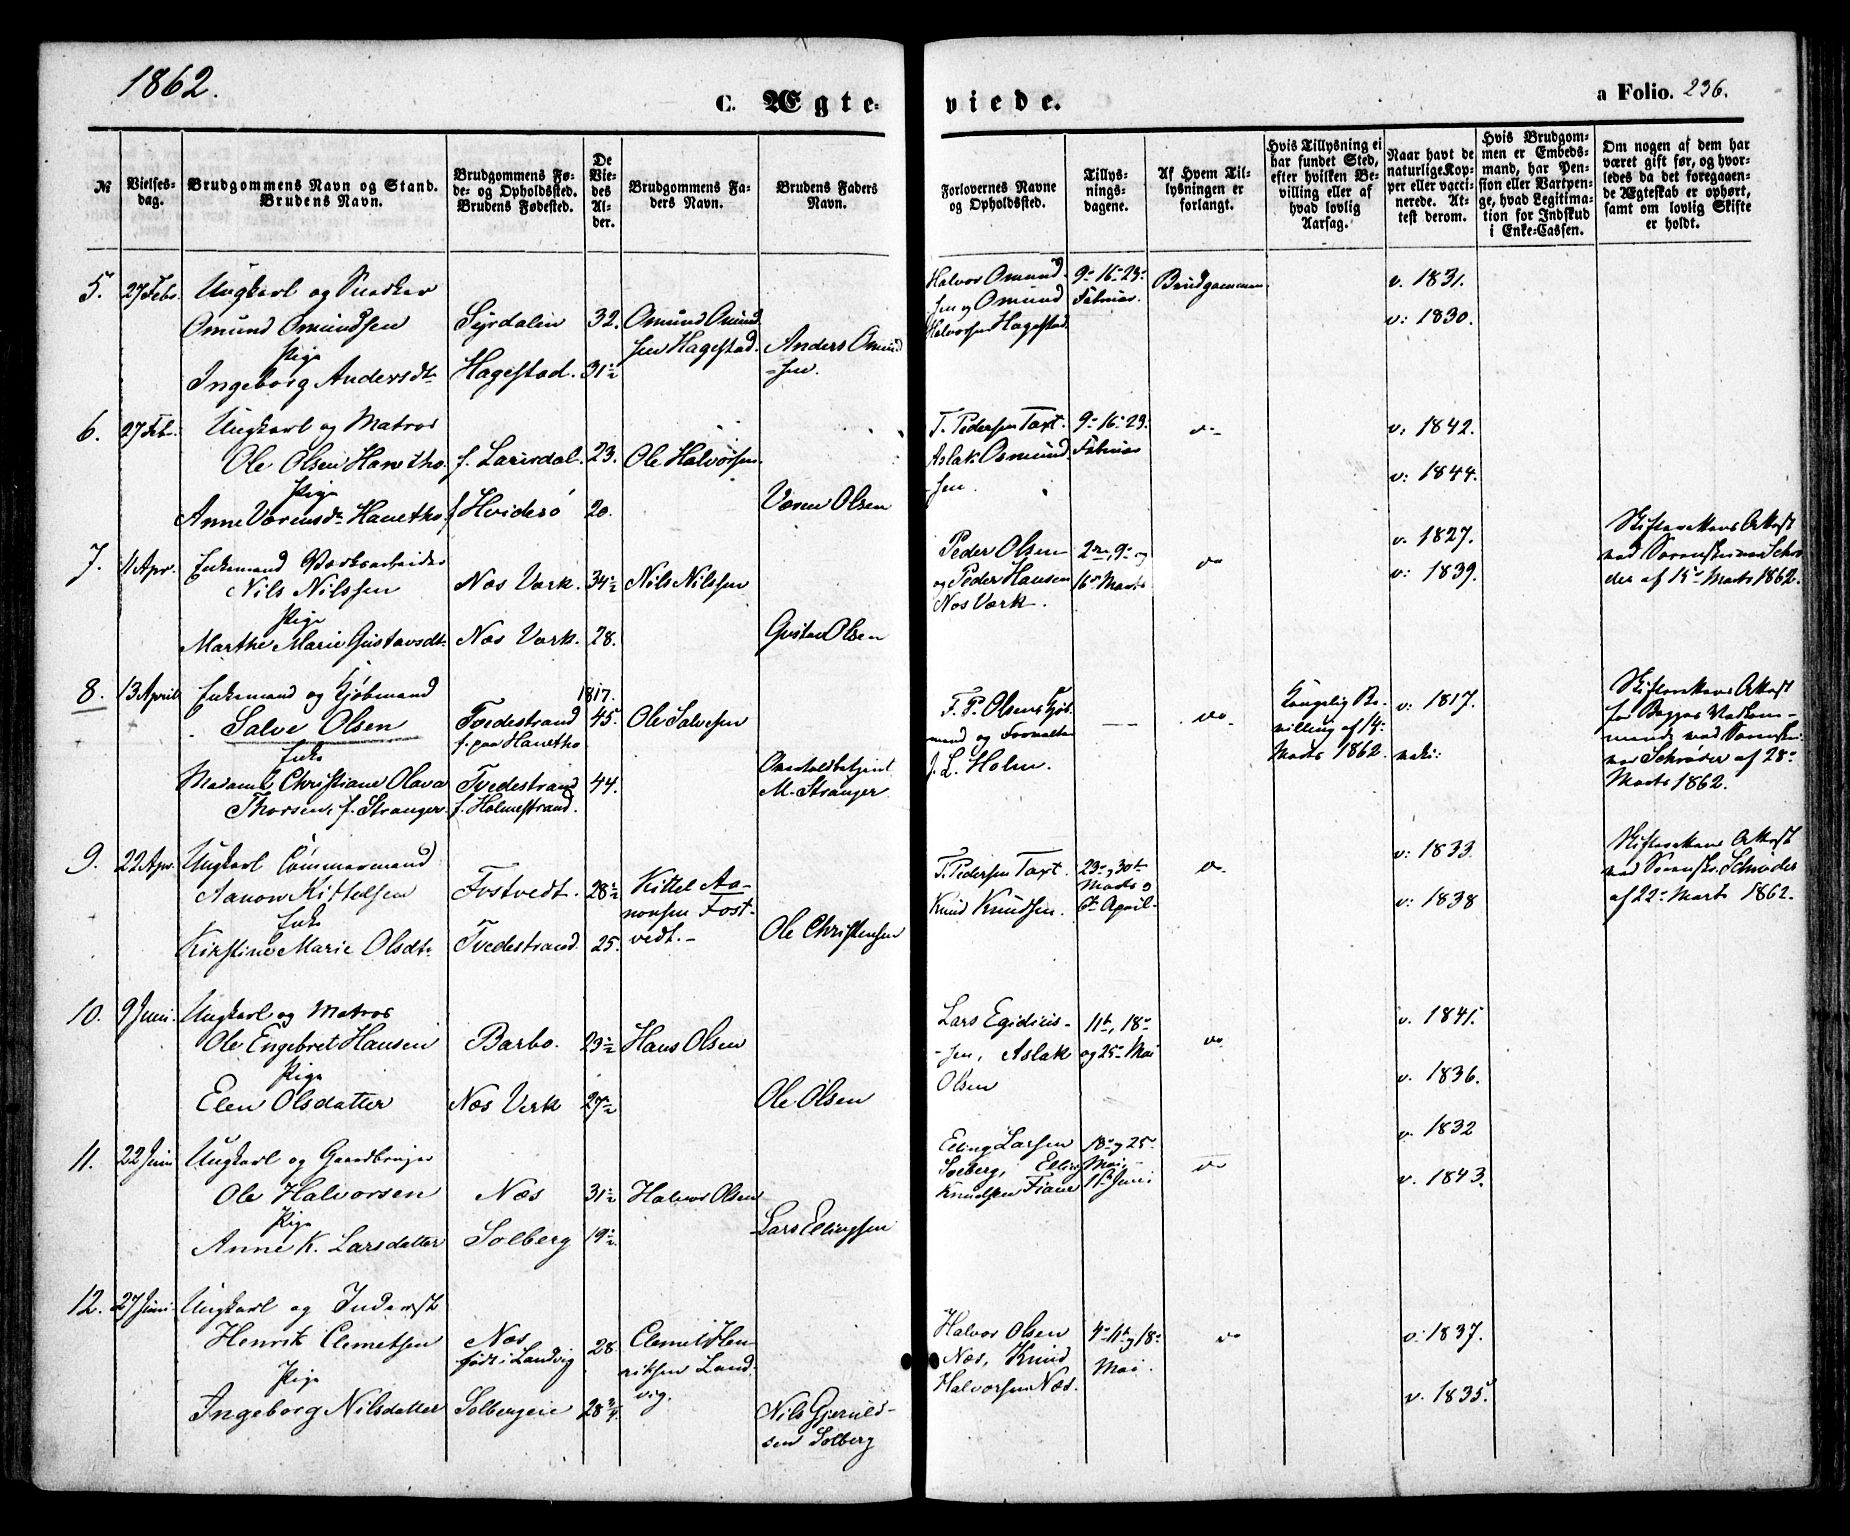 1862.
C. Ægte-
viede.
a Folio. 236.
№
Vielses-
dag.
Brudgommens Navn og Stand.
Brudens Navn.
Brudgommens Fø-
de- og Opholdssted.
Brudens Fødested.
De
Vie-
des
Al-
der.
Brudgommens Fa-
ders Navn.
Brudens Faders
Navn.
Forlovernes Navne
og Opholdssted.
Tillys-
nings-
dagene.
Af Hvem Til-
lysningen er
forlangt.
Hvis Tillysning ei
har fundet Sted,
efter hvilken Be-
villing eller af
hvad lovlig
Aarsag.
Naar havt de
naturlige Kop-
per eller vacci-
nerede. At-
test derom.
Hvis Brudgom-
men er Embeds-
mand, har Pen-
sion eller Vartpen-
ge, hvad Legitima-
tion for Indskud
i Enke-Cassen.
Om nogen af dem har
været gift før, og hvor-
ledes da det foregaaen-
de Ægteskab er ophørt,
samt om lovlig Skifte
er holdt.
5. 27 Febr. Ungkarl og Snedker
Omund Omundsen
Pige
Ingeborg Andersdt.
Syrdalen
Hagestad.
32.
31½
Omund Omund
sen Hagestad.
Anders Omund
-sen.
Halvor Omund
sen og Omund
Halvorsen Hagestad.
9- 16- 23-
Februar.
Brudgommen
v. 1831.
v: 1830.
6. 27 Feb. Ungkarl og Matros
Ole Olsen Hanetho.
Pige
Anne Vorensdt. Hanetho
f. Laursdal.
f. Hviderø
23.
20.
Ole Halvorsen
Voren Olsen
T. Pedersen Taxt.
Aslak Osmund
-sen.
9- 16- 23.
Februar
do
v. 1842.
v: 1844.
7. 11 Apr. Enkemand Værksarbeider
Nils Nilssen
Pige
Marthe Marie Gustavsdt.
Næs Værk.
Næs Værk.
34½
28.
Nils Nilssen
Gustav Olsen
Peder Olsen
og Peder Hansen
Næs Værk.
2den, 9- og
16- Marts
do
v. 1827.
v: 1839.
Skifteretens Attest
ved Sorenskriver Schrø-
der af 15- Marts 1862.
8. 13 April Enkemand og Kjøbmand
Salve Olsen
Enke
Madame Christiane Olava
Thorsen, f. Stranger
Tvedestrand
f. paa Hanetho
Tvedestrand
f. Holmestrand.
1817.
45.
44.
Ole Salvesen
M. Stranger
F. P. Olsen Kjøb
mand og
J. L. Holm.
do.
Kongelig Be-
villing af 14-
Marts 1862.
v: 1817.
Skifteretens Attest
for Begges Vedkom-
mende ved Sorenskri-
ver Schrøder af 28-
Marts 1862.
9. 22 Apr. Ungkarl Tømmermand
Aanon Kittelsen
Enke
Kirstine Marie Olsdt.
Fostvedt.
Tvedestrand.
28½
25.
Kittel Aa-
nonsen Fost-
vedt.
Ole Christensen
T. Pedersen Taxt.
Knud Knudsen.
23- og 30te
Marts og
6te April
do.
v: 1833.
v: 1838
Skifteretens Attest
ved Sorenskr. Schrøder
af 22- Marts 1862.
10. 9 Juni. Ungkarl og Matros
Ole Engebret Hansen
Pige
Elen Olsdatter
Barbo.
Næs Verk
23½
27½
Hans Olsen
Ole Olsen
Lars Egidius-
-sen, Aslak
Olsen
11te, 18-
og 25- Mai
do
v. 1841.
v. 1836.
11. 22 Juni Ungkarl og Gaardbruger
Ole Halvorsen
Pige
Anne K. Larsdatter
Næs
Solberg
31½
19½
Halvor Olsen
Lars Ellingsen
Elling Larsen
Solberg, Elling
Knudsen Fiane
18- og 25-
Mai,
1ste Juni
do
v. 1832
v. 1843.
12. 27 Juni. Ungkarl og Inderst
Henrik Clemetsen
Pige
Ingeborg Nilsdatter
Næs
født i Landvig
Solbergeie
28.
28¾.
Clemet Hen-
riksen Land-
vig.
Nils Gjeruld-
sen Solberg
Halvor Olsen
Næs, Knud
Halvorsen Næs.
4- 11te og 18-
Mai.
do
v. 1837.
v. 1835.